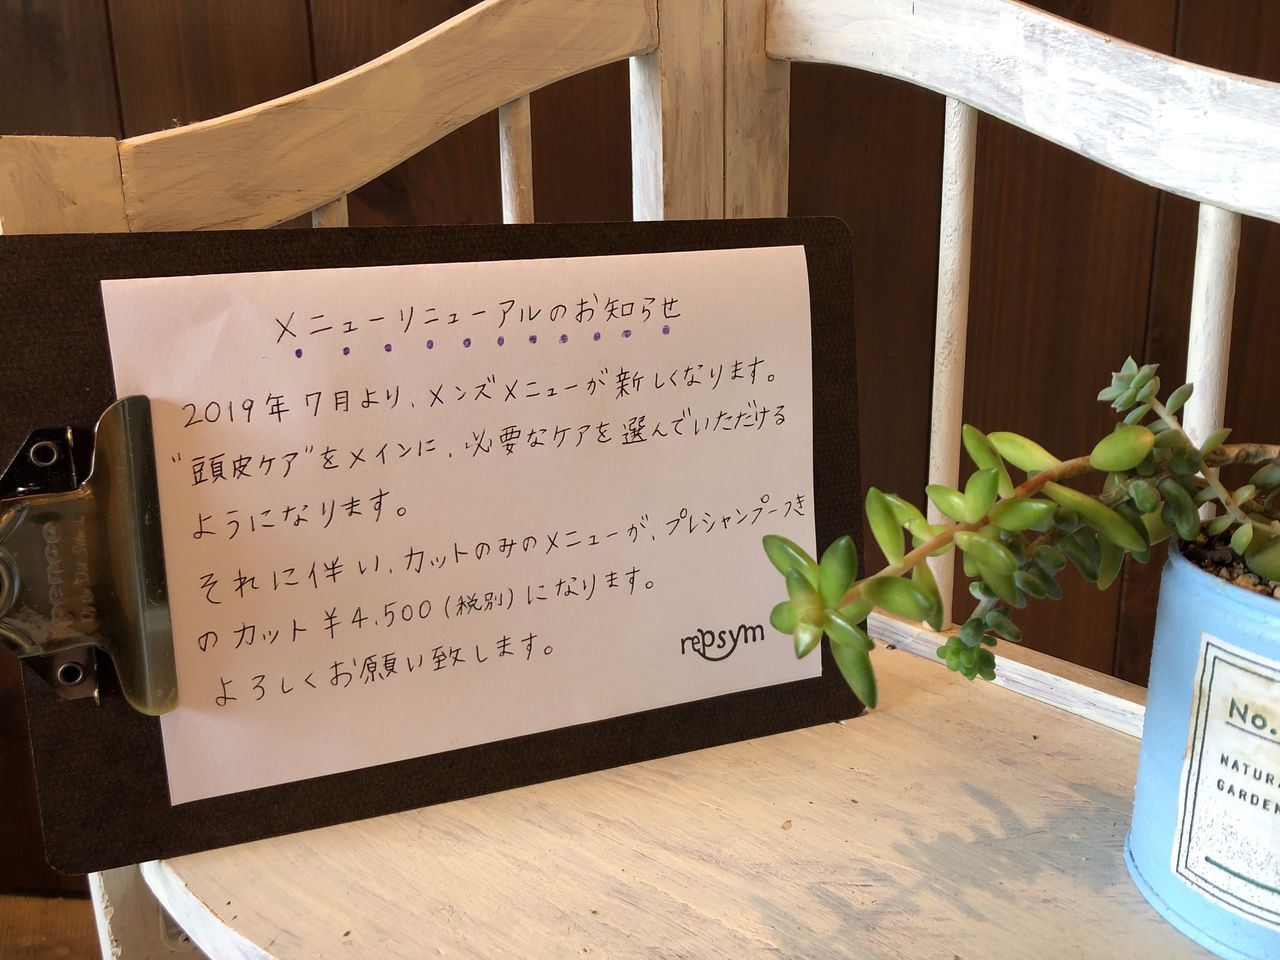 メニューリニューアルのお知らせ
2019年7月より、メンズメニューが新しくなります。
"頭皮ケア"をメインに、必要なケアを選んでいただける
ようになります。
それに伴い、カットのみのメニューが、プレシャンプーつき
のカット ¥4,500(税別)になります。
よろしくお願い致します。
repsym
No.
NATURA
GARDEN